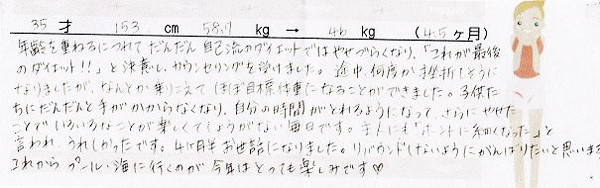 35 才 153 cm 58.7 kg → 46 kg (4.5 ヶ月)
年齢を重ねるにつれて だんだん 自己流のダイエットではやせづらくなり、「これが最後
のダイエット!!」と決意し、カウンセリングを受けました。途中、何度か挫折しそうに
なりましたが、なんとか乗りこえて ほぼ目標体重になることができました。子供た
ちにだんだんと手がかからなくなり、自分の時間がとれるようになって、さらにやせた
ことで いろいろなことが楽しくてしょうがない毎日です。主人にも「ホントに細くなった」と
言われ、うれしかったです。4ヶ月半 お世話になりました。リバウンドしないようにがんばりたいと思います
これから プール・海に行くのが 今年はとっても楽しみです♡